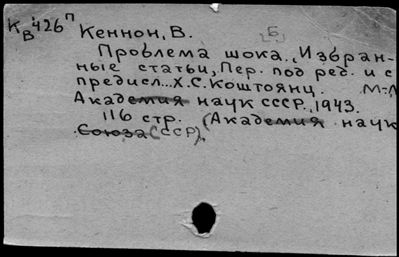 К 426 П
В
Кеннон, В. Б
Проблема шока. Избран-
ные статьи, Пер. под ред. и с
предисл... Х.С. Коштоянц. М-Л
Академия наук СССР, 1943.
116 стр. (Академия наук
Союза (ССР).